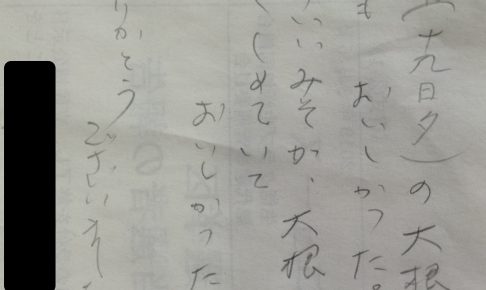 十九日夕)の大根
も おいしかった。
いいみそが、大根
くしめていて
おいしかった
りがとう
ございまし